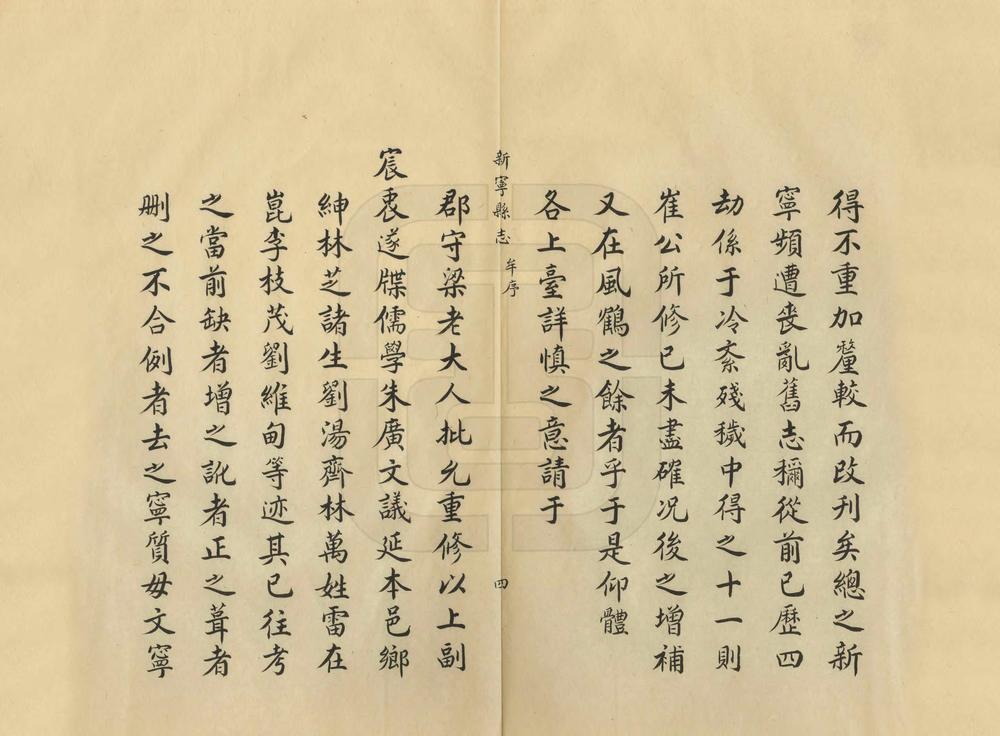 得不重加釐較而改刊矣總之新
寧頻遭喪亂舊志稱從前已歷四
劫係于冷紊殘穢中得之十一則
崔公所修已未盡確况後之增補
又在風鶴之餘者乎于是仰體
各上臺詳慎之意請于
新寧縣志 牟序 四
郡守梁老大人批允重修以上副
宸衷遂牒儒學朱廣文議延本邑鄉
紳林芝諸生劉湯齊林萬姓雷在
崑李枝茂劉維甸等迹其已往考
之當前缺者增之訛者正之葺者
删之不合例者去之寧質毋文寧